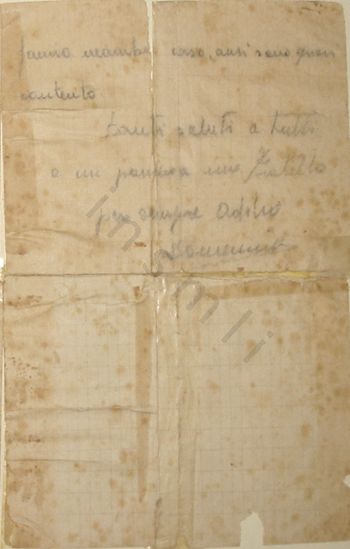 fanno neanche caso, anzi sono quasi
contento
Tanti saluti a tutti
e un mio Fratello
per sempre Adiio
Domenico
insmli